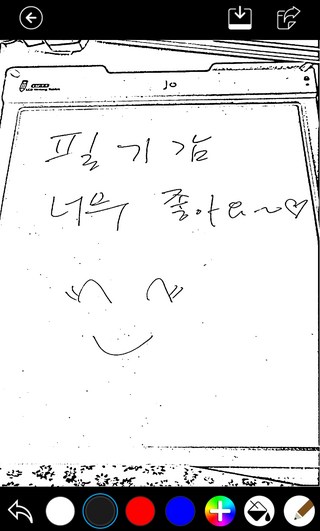 JO
필기감
너무 좋아요~♡